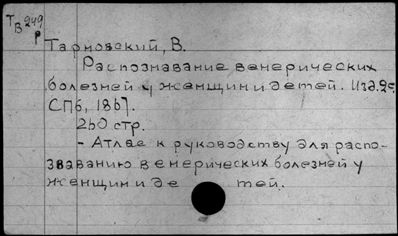 Тв 249
р
Тарновский, В.
Распознавание венерических
болезней у женщин и детей. Изд. 2е.
СПб, 1867.
260 стр.
- Атлас к руководству для распо-
знаванию венерических болезней у
женщин и де тей.